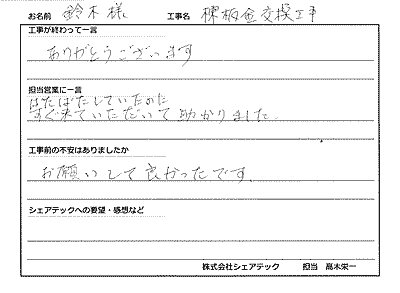 お名前 鈴木様 工事名 棟板金交換工事
工事が終わって一言
ありがとうございます
担当営業に一言
ばたばたしていたのに
すぐ来ていただいて助かりました。
工事前の不安はありましたか
お願いして良かったです。
シェアテックへの要望・感想など
株式会社シェアテック 担当 髙木栄一